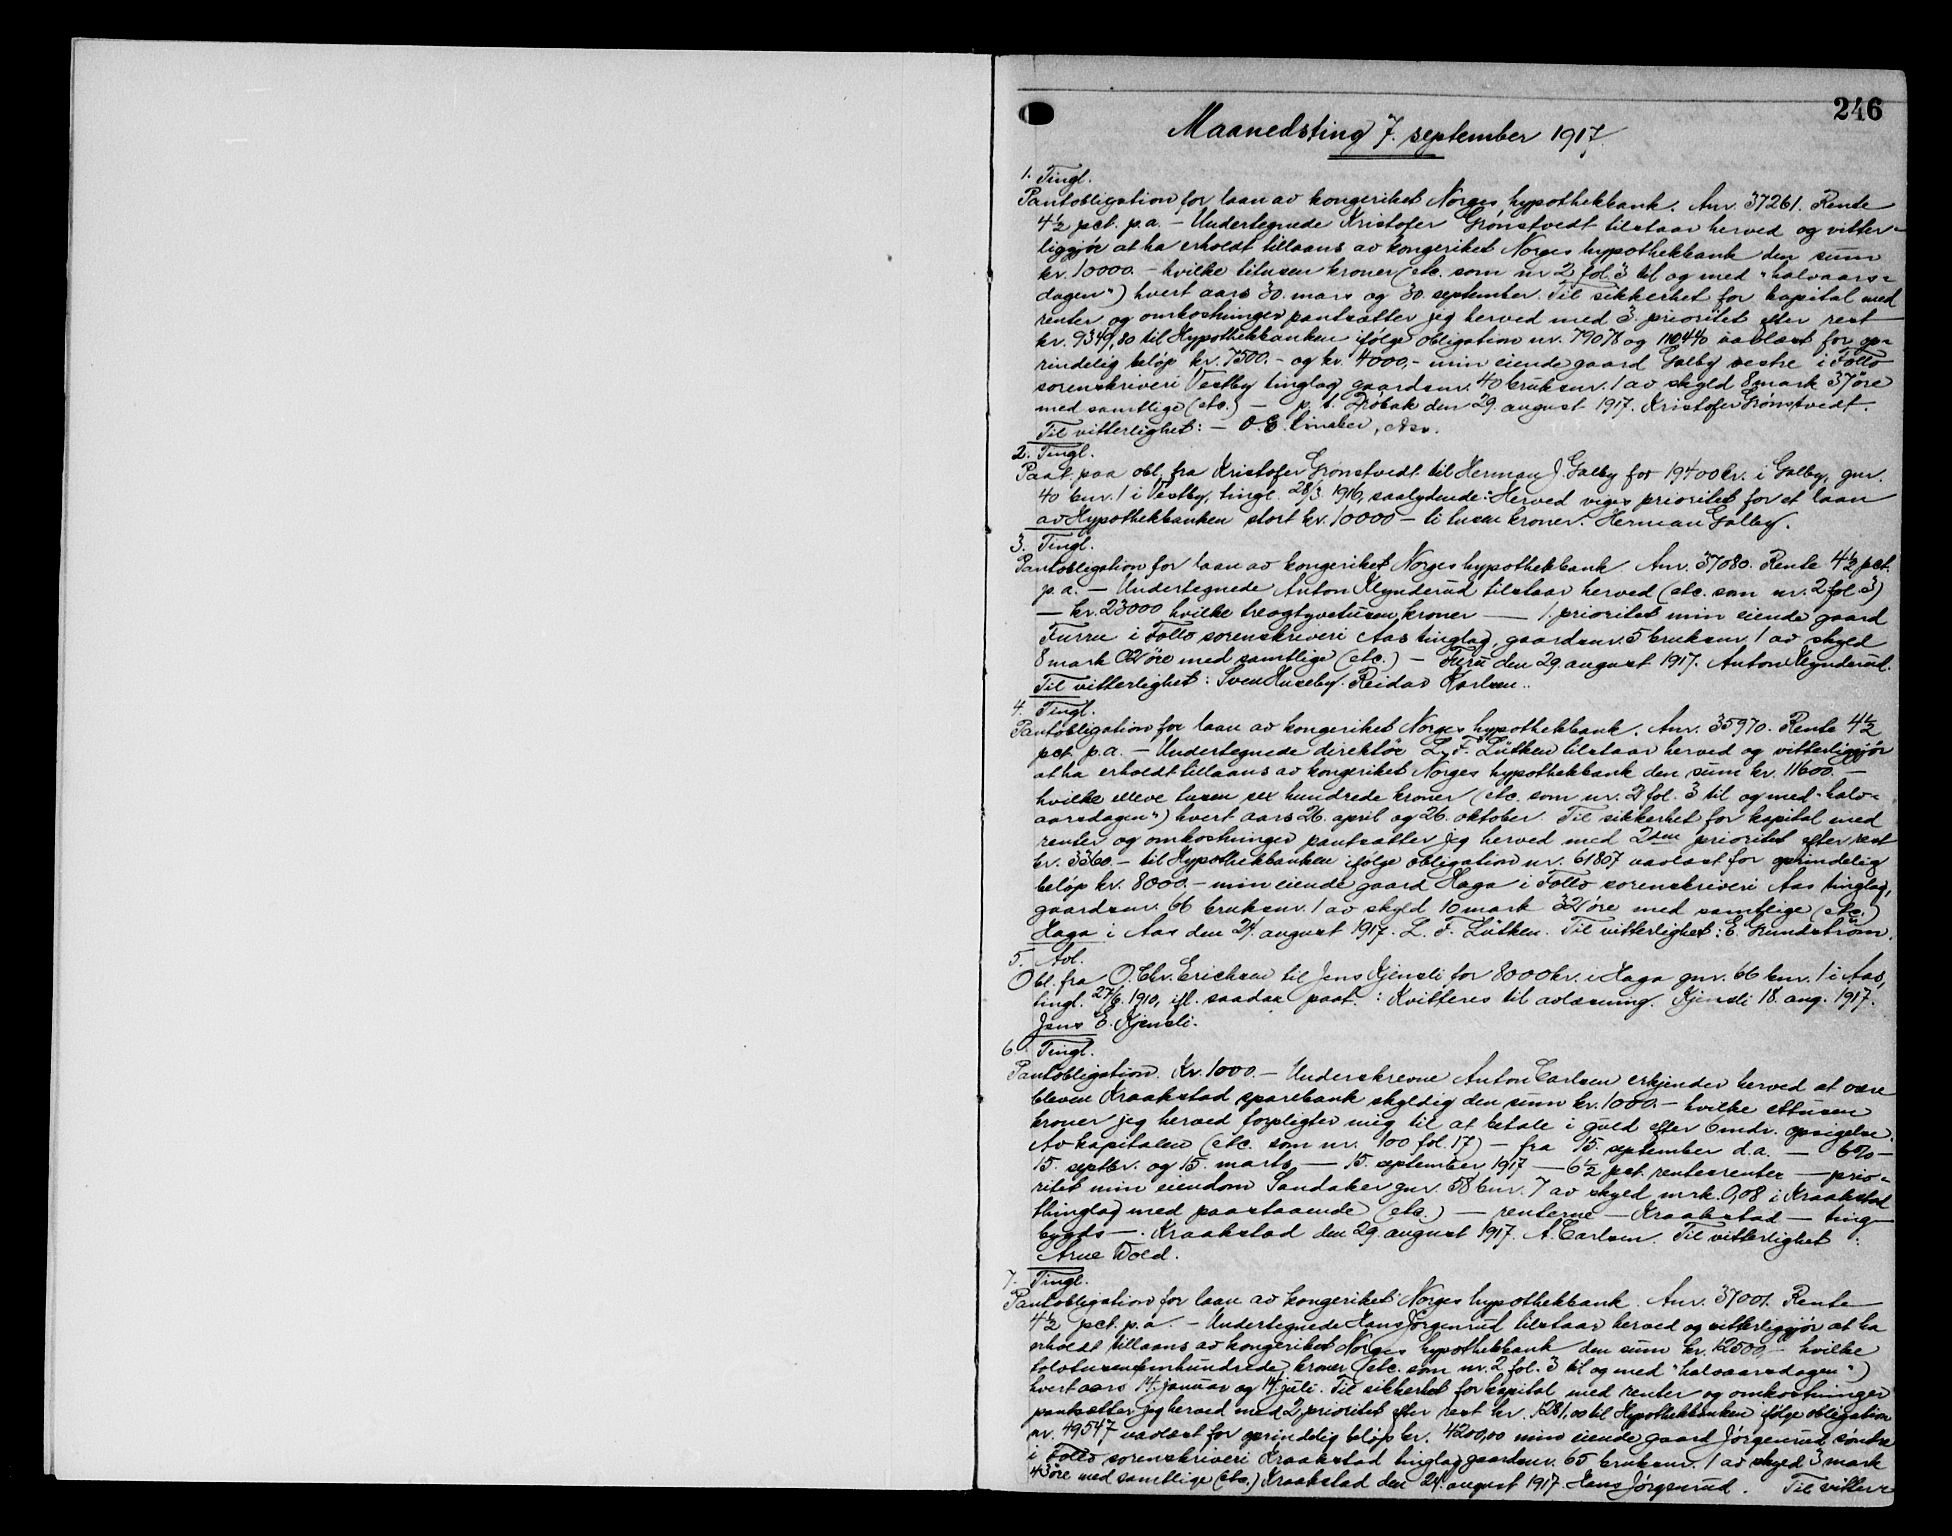 246
Maanedsting 7. september 1917.
1. Tingl.
Pantobligation for laan av kongeriket Norges hypothekbank. Anr. 37261. Rente
4½ pct. p.a. – Undertegnede Kristofer Grønstvedt tilstaar herved og vitter-
liggjør at ha erholdt tillaans av kongeriket Norges hypothekbank den sum
kr. 10000.– hvilke titusen kroner (etc. som nr 2 fol. 3 til og med "halvaars-
dagen") hvert aars 30. mars og 30. september. Til sikkerhet for kapital med
renter og omkostninger pantsætter jeg herved med 3. prioritet efter rest
kr. 9349,80 til Hypothekbanken ifølge obligation nr. 79078 og 110440 utvlost for op-
rindelig beløp kr. 7500.– og kr. 4000,– min eiende gaard Galby vestre i Follo
sorenskriveri Vestby tinglag gaardsnr. 40 bruksnr. 1 av skyld 8 mark 37 øre
med samtlige (etc.) – p. t. Drøbak den 29. august 1917. Kristofer Grønstvedt.
Til vitterlighet: – O. E.
2. Tingl.
Paat. paa obl. fra Kristofer Grønstvedt til Herman J. Galby for 19400 kr. i Galby, gnr.
40 bnr. 1 i Vestby, tingl. 28/3 1916, saalydende: Herved viges prioritet for et laan
av Hypothekbanken stort kr. 10000 – ti tusen kroner. Herman Galby.
3. Tingl.
Pantobligation for laan av kongeriket Norges hypothekbank. Anr. 37080. Rente 4½ pct.
p. a. – Undertegnede Anton Klynderud tilstaar herved (etc. som nr. 2 fol 3)
— kr. 23000 hvilke treogtyvetusen kroner — 1. prioritet min eiende gaard
Furru i Follo sorenskriveri Aas tinglag, gaardsnr. 5 bruksnr. 1 av skyld
8 mark 02 øre med samtlige (etc.) – Furu den 29. august 1917. Anton Klynderud.
Til vitterlighet: Sven Huseby. Reidar Karlsen.
4. Tingl.
Pantobligation for laan av kongeriket Norges hypothekbank. Anr. 35970. Rente 4½
pct p.a. – Undertegnede direktør L. F. Lütken tilstaar herved og vitterliggjør
at ha erholdt tillaans av kongeriket Norges hypothekbank den sum kr. 11600.–
hvilke elleve tusen sex hundrede kroner (etc. som nr. 2 fol. 3 til og med "halv-
aarsdagen") hvert aars 26. april og 26. oktober. Til sikkerhet for kapital med
renter og omkostninger pantsætter jeg herved med 2den prioritet efter rest
kr. 3360.– til Hypothekbanken ifølge obligation nr. 61807 uavløst for oprindelig
beløp kr. 8000.– min eiende gaard Haga i Follo sorenskriveri Aas tinglag,
gaardsnr. 66 bruksnr. 1 av skyld 10 mark 32 øre med samtlige (etc.)
Haga i Aas den 24. august 1917. L. F. Lütken. Til vitterlighet: E. Grundstrøm.
5. Avl.
Obl. fra O. Chr. Erichsen til Jens Kjensli for 8000 kr. i Haga gnr. 66 bnr. 1 i Aas,
tingl. 27/6 1910, ifl. saadan paat.: Kvitteres til avlæsning. Kjensli 18. aug. 1917.
Jens E. Kjensli.
6. Tingl.
Pantobligation. Kr. 1000.– Underskrevne Anton Carlsen erkjender herved at være
bleven Kraakstad sparebank skyldig den sum kr. 1000.– hvilke ettusen
kroner jeg herved forpligter mig til at betale i guld efter 6 mdr. opsigelse.
Av kapitalen (etc. som nr. 100 fol. 17) – fra 15. september d.a. – 6% –
15. septbr. og 15. marts — 15. september 1917 — 6½ pct. rentesrenter — prio-
ritet min eiendom Sandaker gnr. 58 bnr. 7 av skyld mrk. 0,08 i Kraakstad
thinglag med paastaaende (etc.) — renterne – Kraakstad – ting-
bygds –. Kraakstad den 29. august 1917. A. Carlsen. Til vitterlighet:
Arne Wold.
7. Tingl.
Pantobligation for laan av kongeriket Norges hypothekbank. Anr. 37001. Rente
4½ pct. p.a. – Undertegnede Hans Jørgenrud tilstaar herved og vitterliggjør at ha
erholdt tillaans av kongeriket Norges hypothekbank den sum kr. 12500,– hvilke
tolvtusenfemhundrede kroner (etc. som nr. 2 fol. 3 til og med "halvaarsdagen")
hvert aars 14. januar og 14. juli. Til sikkerhet for kapital med renter og omkostninger
pantsætter jeg herved med 2 prioritet efter rest kr. 1281,00 til Hypothekbanken ifølge obligation
nr. 49547 uavløst for oprindelig beløp kr. 4200,00 min eiende gaard Jørgenrud søndre
i Follo sorenskriveri Kraakstad tinglag gaardsnr. 65 bruksnr. 1 av skyld 3 mark
43 øre med samtlige (etc.) Kraakstad den 24. august 1917. Hans Jørgenrud. Til vitter-